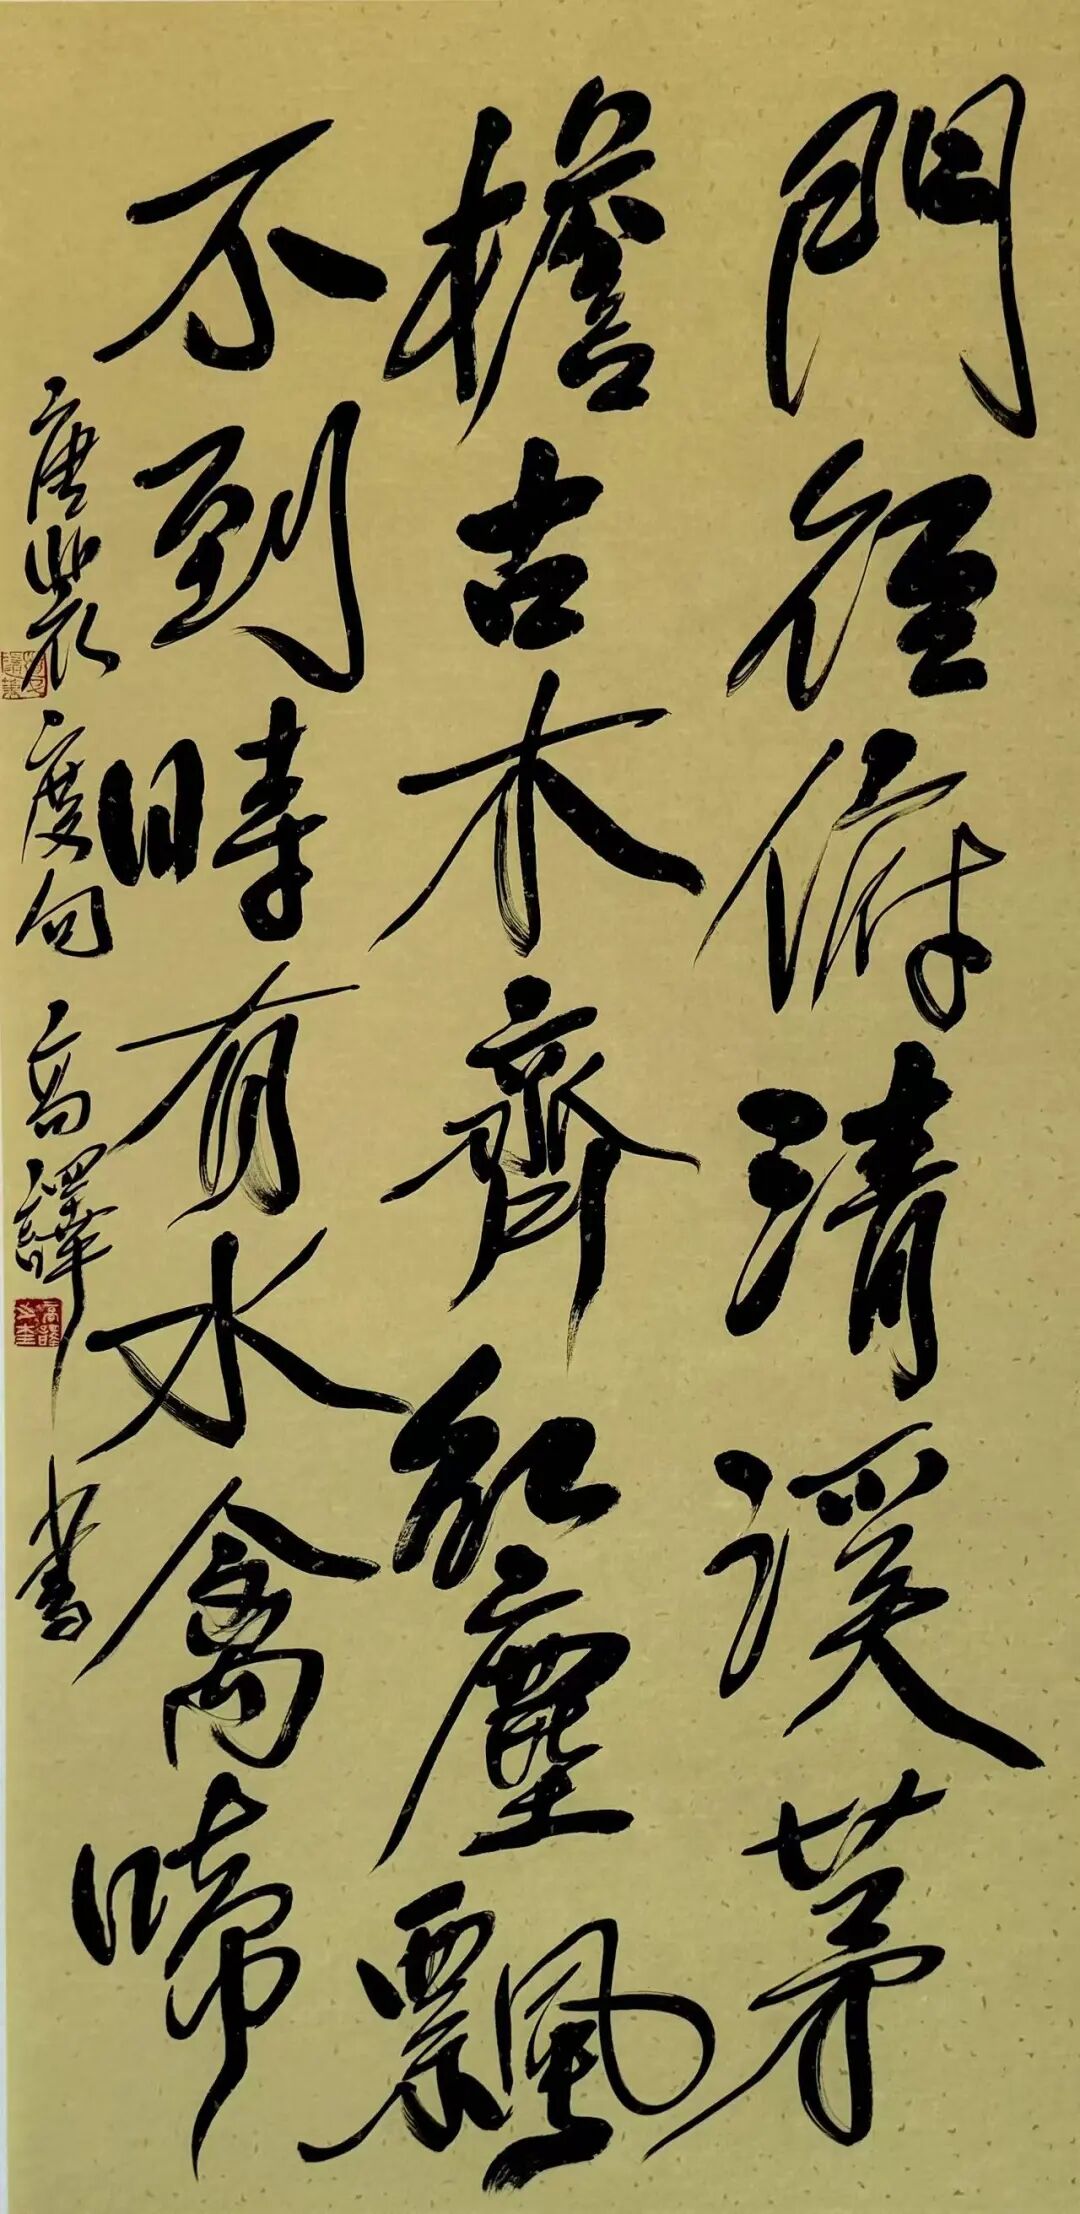 門徑俯清溪茅
檐古木齊紅塵飄
不到時有水禽啼
唐裴度句高譯書